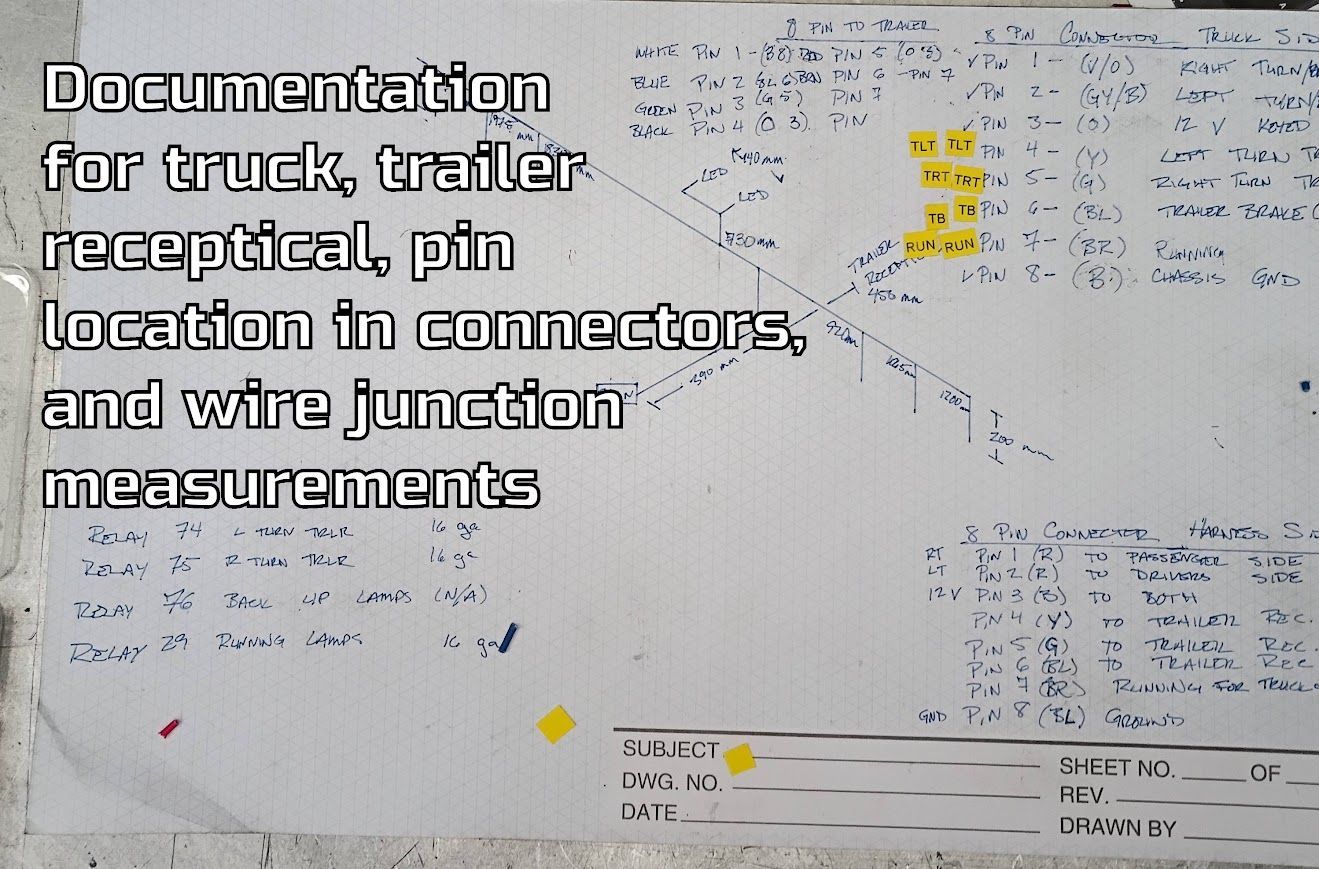 Documentation
for truck, trailer
receptical, pin
location in connectors,
and wire junction
measurements
8 PIN TO TRAILER
WHITE PIN 1 - (B8) RED PIN 5 (O 3)
BLUE PIN 2 (BL 6) BRN PIN 6 - PIN 7
GREEN PIN 3 (G 5) PIN 7
BLACK PIN 4 (O 3) PIN
8 PIN CONNECTOR TRUCK SID
✓ PIN 1 - (V/O) RIGHT TURN/B
✓ PIN 2 - (GY/B) LEFT TURN/
✓ PIN 3 - (O) 12 V KEYED
TLT TLT PIN 4 - (Y) LEFT TURN TR
TRT TRT PIN 5 - (G) RIGHT TURN TR
TB TB PIN 6 - (BL) TRAILER BRAKE (
RUN RUN PIN 7 - (BR) RUNNING
✓ PIN 8 - (B) CHASSIS GND
mm
mm
LED
440mm
LED
730mm
TRAILER
RECEPT
456 mm
390 mm
920mm
1200
200 mm
RELAY 74 L TURN TRLR 16 ga
RELAY 75 R TURN TRLR 16 ga
RELAY 76 BACK UP LAMPS (N/A)
RELAY 29 RUNNING LAMPS 16 ga
8 PIN CONNECTER HARNESS SI
RT PIN 1 (R) TO PASSENGER SIDE
LT PIN 2 (R) TO DRIVERS SIDE
12V PIN 3 (B) TO BOTH
PIN 4 (Y) TO TRAILER REC.
PIN 5 (G) TO TRAILER REC.
PIN 6 (BL) TO TRAILER REC
PIN 7 (BR) RUNNING FOR TRUCK
GND PIN 8 (BL) GROUND
SUBJECT
DWG. NO.
DATE
SHEET NO. OF
REV.
DRAWN BY